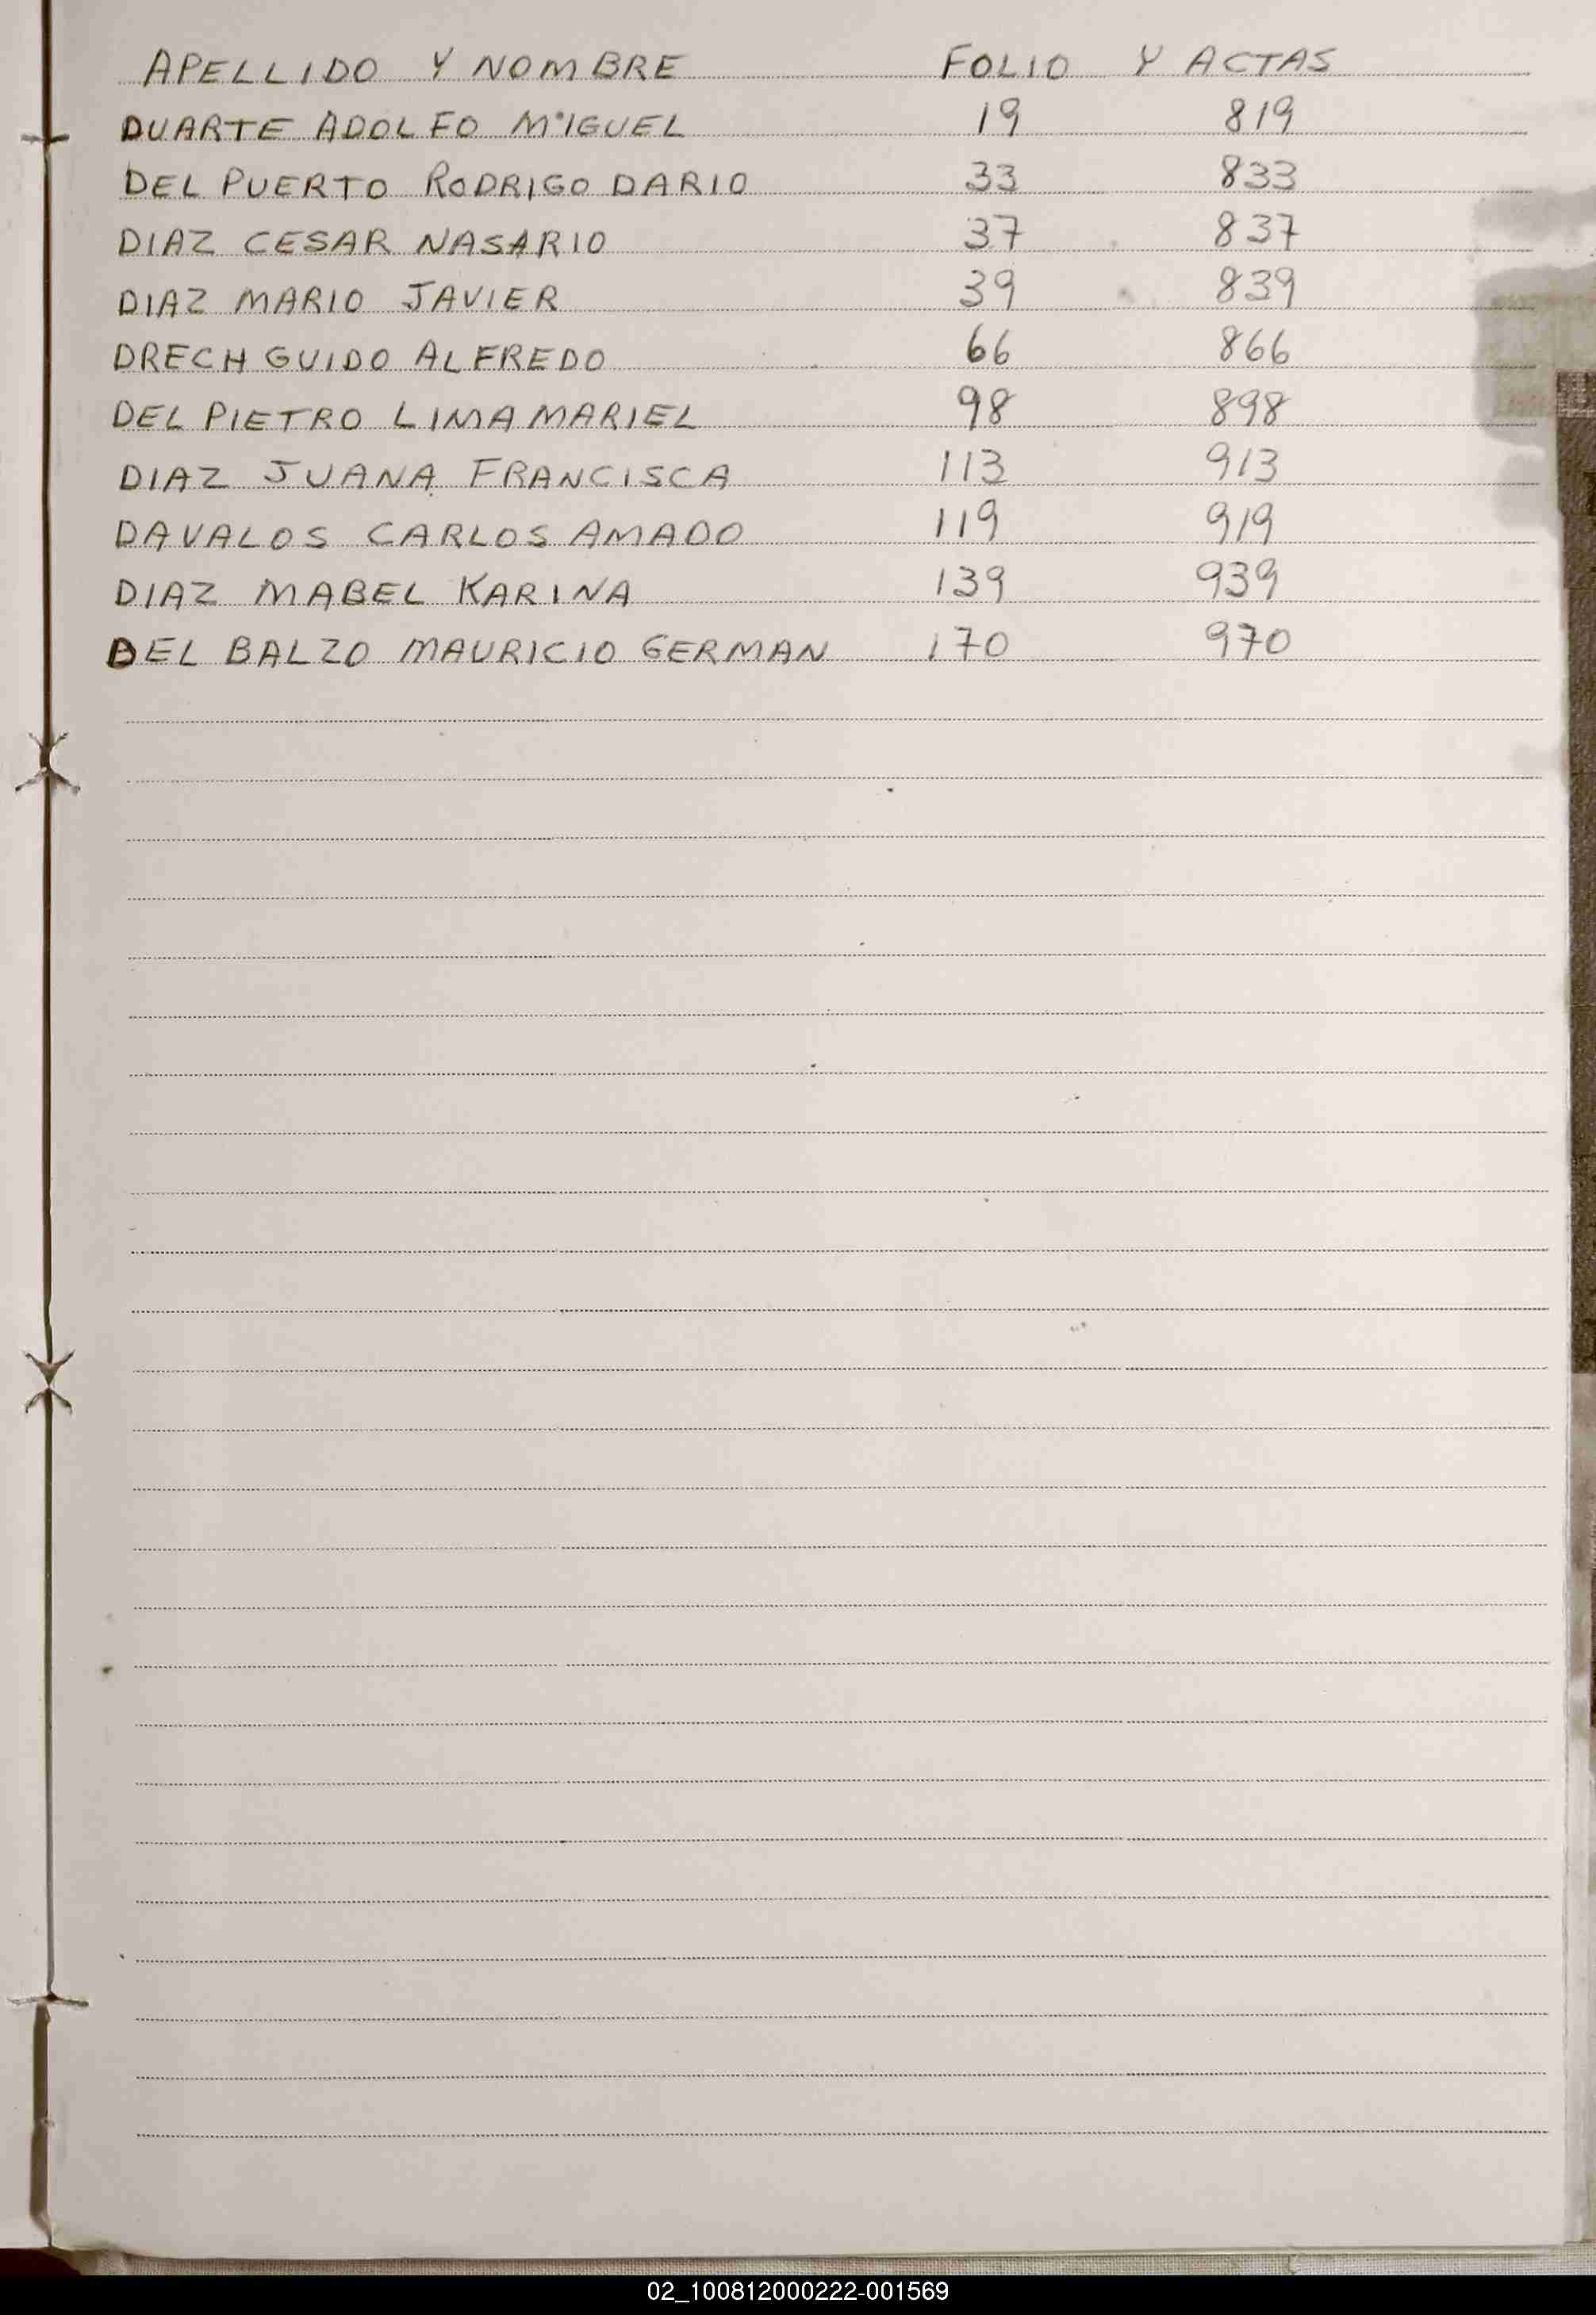 APELLIDO Y NOMBRE FOLIO Y ACTAS
DUARTE ADOLFO MIGUEL 19 819
DEL PUERTO RODRIGO DARIO 33 833
DIAZ CESAR NASARIO 37 837
DIAZ MARIO JAVIER 39 839
DRECH GUIDO ALFREDO 66 866
DEL PIETRO LIMA MARIEL 98 898
DIAZ JUANA FRANCISCA 113 913
DAVALOS CARLOS AMADO 119 919
DIAZ MABEL KARINA 139 939
DEL BALZO MAURICIO GERMAN 170 970
02_100812000222-001569